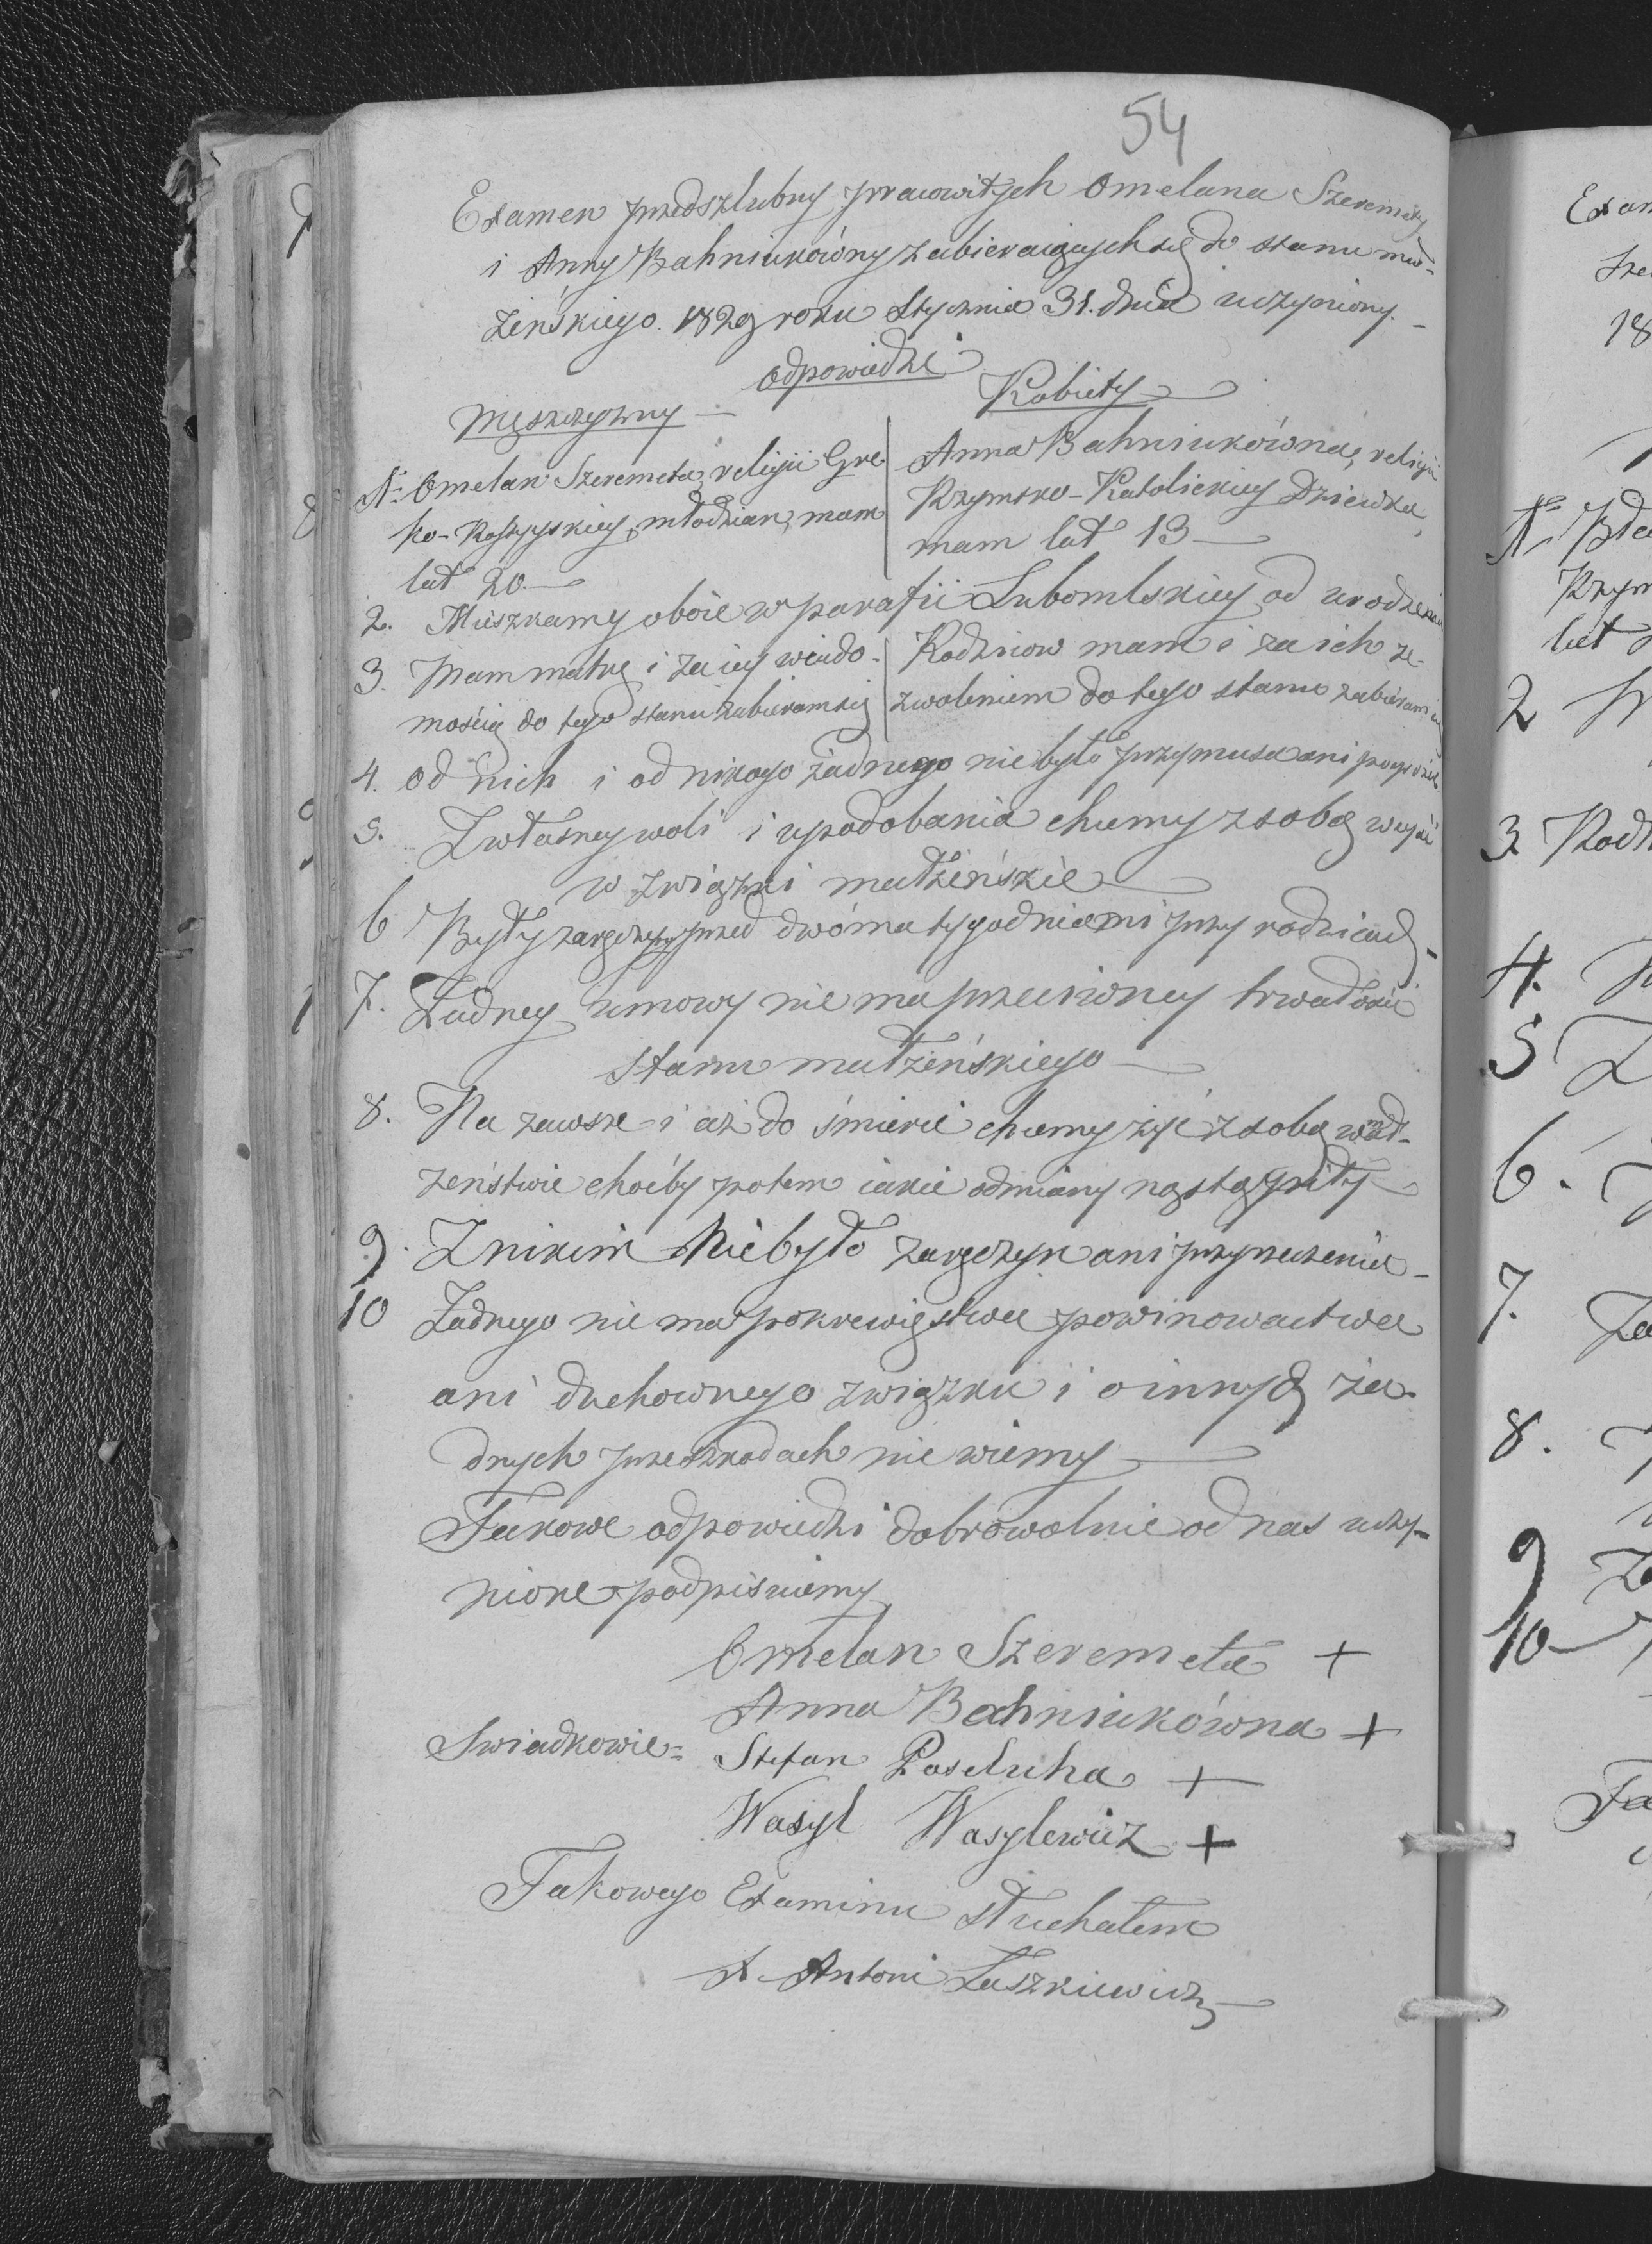 54
Examen przedszlubny pracowitych Omelana Szeremety
i Anny Bahniukówny zabieraiących się do stanu mał-
żeńskiego. 1829 roku Stycznia 31. dnia uczyniony. -
Odpowiedzi
Męszczyzny —
Kobiety
No Omelan Szeremeta religii Gre
ko-Rossyyskiey, młodzian, mam
lat 20.—
Anna Bahniukówna, religii
Rzymsko-Katolickiey Dziewka,
mam lat 13 —
2. Mieszkamy oboie w parafii Lubomlskiey od urodzenia
3. Mam matkę i za iey wiado-
mością do tego stanu zabieram się
Rodziców mam i za ich ze-
zwoleniem do tego stanu zabieram się
4. od nich i od nikogo żadnego nie było przymusu ani pogróżek
5. Zwłasney woli i upodobania chcemy z sobą weyść
w związki małżeńskie —
6 Były zaręczyny przed dwóma tygodniami przy rodzicach -
7. Żadney umowy nie ma przeciwney trwałości
stanu małżeńskiego —
8. Na zawsze i aż do śmierci chcemy żyć z sobą w mał-
żeństwie choćby potem iakie odmiany nastąpiły
9. Znikim Niebyło zaręczyn ani przyrzeczenia -
10 Żadnego nie ma pokrewięstwa powinowactwa
ani duchownego związku i o innych ża-
dnych przeszkodach nie wiemy —
Takowe odpowiedzi dobrowolnie od nas uczy-
nione podpisuiemy
Omelan Szeremeta +
Anna Bahniukówna +
Swiadkowie=
Stefan Paseluha +
Wasyl Wasylewicz +
Takowego Examinu słuchałem
X Antoni Łaszkiewicz —